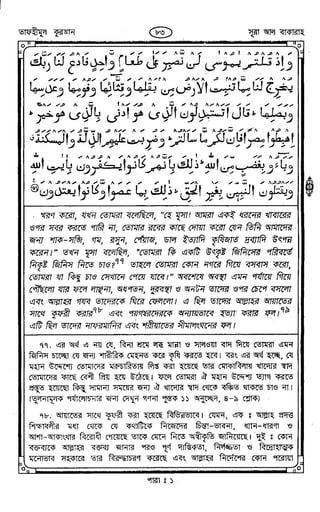 তাফহীমুল কুরআন
৮৩
সূরা আল বাকারাহ
وَإِذْ قُلْتُمْ يٰمُوسٰى لَنْ نَّصْبِرَ عَلٰى طَعَامٍ وَّاحِدٍ فَادْعُ لَنَا رَبَّكَ
يُخْرِجْ لَنَا مِمَّا تُنْۢبِتُ الْاَرْضُ مِنْۢ بَقْلِهَا وَقِثَّآئِهَا وَفُوْمِهَا وَعَدَسِهَا
وَبَصَلِهَا ۚ قَالَ اَتَسْتَبْدِلُوْنَ الَّذِيْ هُوَ اَدْنٰى بِالَّذِيْ هُوَ خَيْرٌ ۚ
اِهْبِطُوْا مِصْرًا فَاِنَّ لَكُمْ مَّا سَاَلْتُمْ ۚ وَضُرِبَتْ عَلَيْهِمُ الذِّلَّةُ وَالْمَسْكَنَةُ ۙ
وَبَآءُوْ بِغَضَبٍ مِّنَ اللهِ ۚ ذٰلِكَ بِاَنَّهُمْ كَانُوْا يَكْفُرُوْنَ بِاٰيٰتِ اللهِ
وَيَقْتُلُوْنَ النَّبِيّٖنَ بِغَيْرِ الْحَقِّ ۚ ذٰلِكَ بِمَا عَصَوْا وَّكَانُوْا يَعْتَدُوْنَ
স্মরণ করো, যখন তোমরা বলেছিলে, "হে মূসা! আমরা একই ধরনের খাবারের
ওপর সবর করতে পারি না, তোমার রবের কাছে দোয়া করো যেন তিনি আমাদের
জন্য শাক-সব্জি, গম, রসুন, পেঁয়াজ, ডাল ইত্যাদি কৃষিজাত দ্রব্যাদি উৎপন্ন
করেন।" তখন মূসা বলেছিল, "তোমরা কি একটি উৎকৃষ্ট জিনিসের পরিবর্তে
নিকৃষ্ট জিনিস নিতে চাও?৭৭ তাহলে তোমরা কোন নগরে গিয়ে বসবাস করো,
তোমরা যা কিছু চাও সেখানে পেয়ে যাবে।" অবশেষে অবস্থা এমন পর্যায়ে গিয়ে
পৌঁছলো যার ফলে লাঞ্ছনা, অধপতন, দুরবস্থা ও অনটন তাদের ওপর চেপে বসলো
এবং আল্লাহর গযব তাদেরকে ঘিরে ফেললো। এ ছিল তাদের আল্লাহর আয়াতের
সাথে কুফরী করার৭৮ এবং পয়গম্বরদেরকে অন্যায়ভাবে হত্যা করার ফল।৭৯
এটি ছিল তাদের নাফরমানির এবং শরীয়াতের সীমালংঘনের ফল।
৭৭. এর অর্থ এ নয় যে, বিনা শ্রমে লব্ধ মান্না ও সালওয়া বাদ দিয়ে তোমরা এমন
জিনিস চাচ্ছো যে জন্য শারীরিক মেহনত করে কৃষি করতে হবে। বরং এর অর্থ হচ্ছে, যে
মহান উদ্দেশ্যে তোমাদের মরুচারিতায় লিপ্ত করা হয়েছে তার মোকাবিলায় খাদ্যের স্বাদ
তোমাদের কাছে বেশী প্রিয় হয়ে উঠেছে। ফলে তোমরা ঐ মহান উদ্দেশ্য ত্যাগ করতে
প্রস্তুত হয়েছো কিন্তু সামান্য সময়ের জন্য ঐ খাদ্যের স্বাদ থেকে বঞ্চিত থাকতে চাও না।
(তুলনামূলক পর্যালোচনার জন্য দেখুন গণনা পুস্তক ১১ অনুচ্ছেদ, ৪-৯ শ্লোক)
৭৮. আয়াতের সাথে কুফরী করা হয়েছে বিভিন্নভাবে। যেমন, এক ঃ আল্লাহ প্রদত্ত
শিক্ষাবলীর মধ্য থেকে যে কথাটিকে নিজেদের চিন্তা-ভাবনা, ধ্যান-ধারণা ও
আশা-আকাংখার বিরোধী পেয়েছে তাকে মেনে নিতে অস্বীকৃতি জানিয়েছে। দুই ঃ কোন
বক্তব্যকে আল্লাহর বক্তব্য জানার পরও পূর্ণ দাম্ভিকতা, নির্লজ্জতা ও বিদ্রোহাত্মক
মনোভাব সহকারে তার বিরুদ্ধাচরণ করেছে এবং আল্লাহর নির্দেশের কোন পরোয়া
পারা ঃ ১